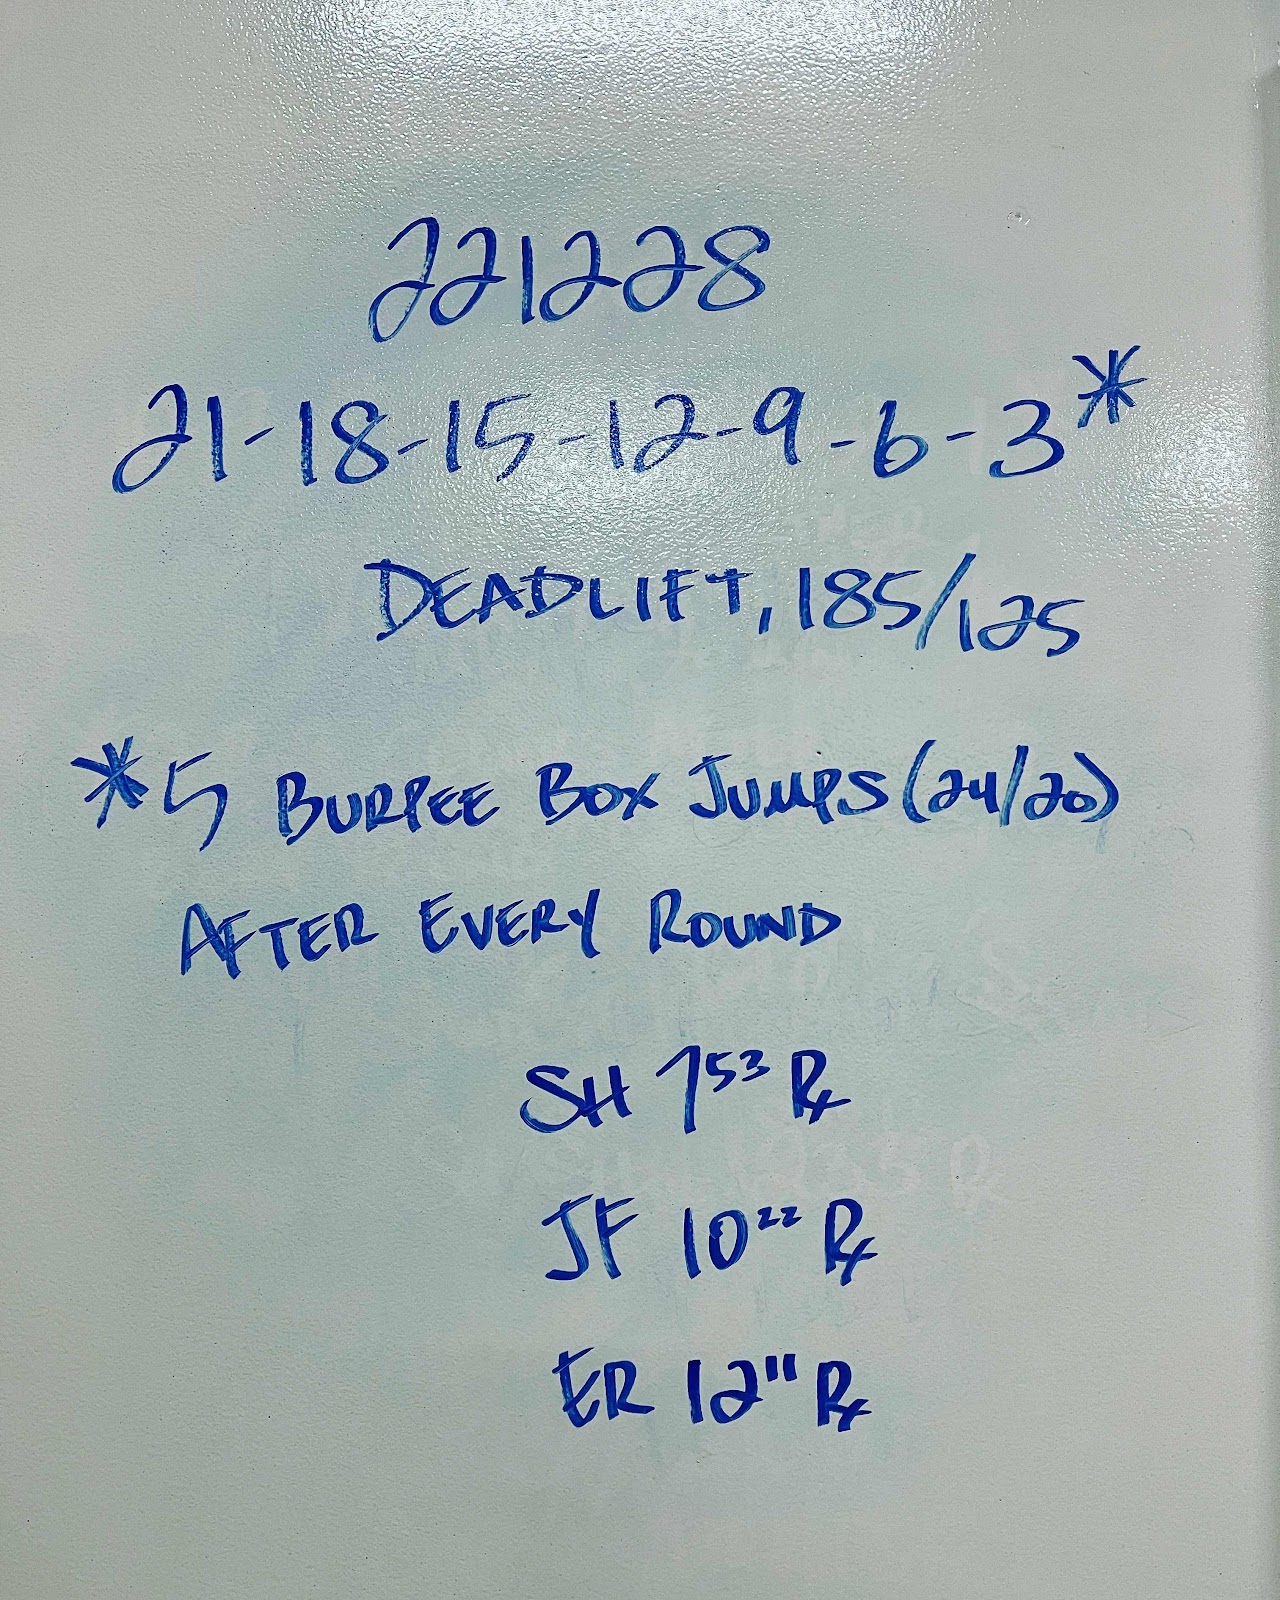 221228
21-18-15-12-9-6-3*
DEADLIFT, 185/125
*5 BURPEE BOX JUMPS (24/20)
AFTER EVERY ROUND
SH 7⁵³ Rx
JF 10²² Rx
ER 12¹¹ Rx